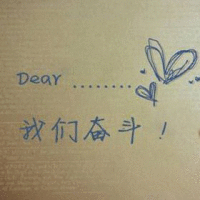 Dear ........
我们奋斗！